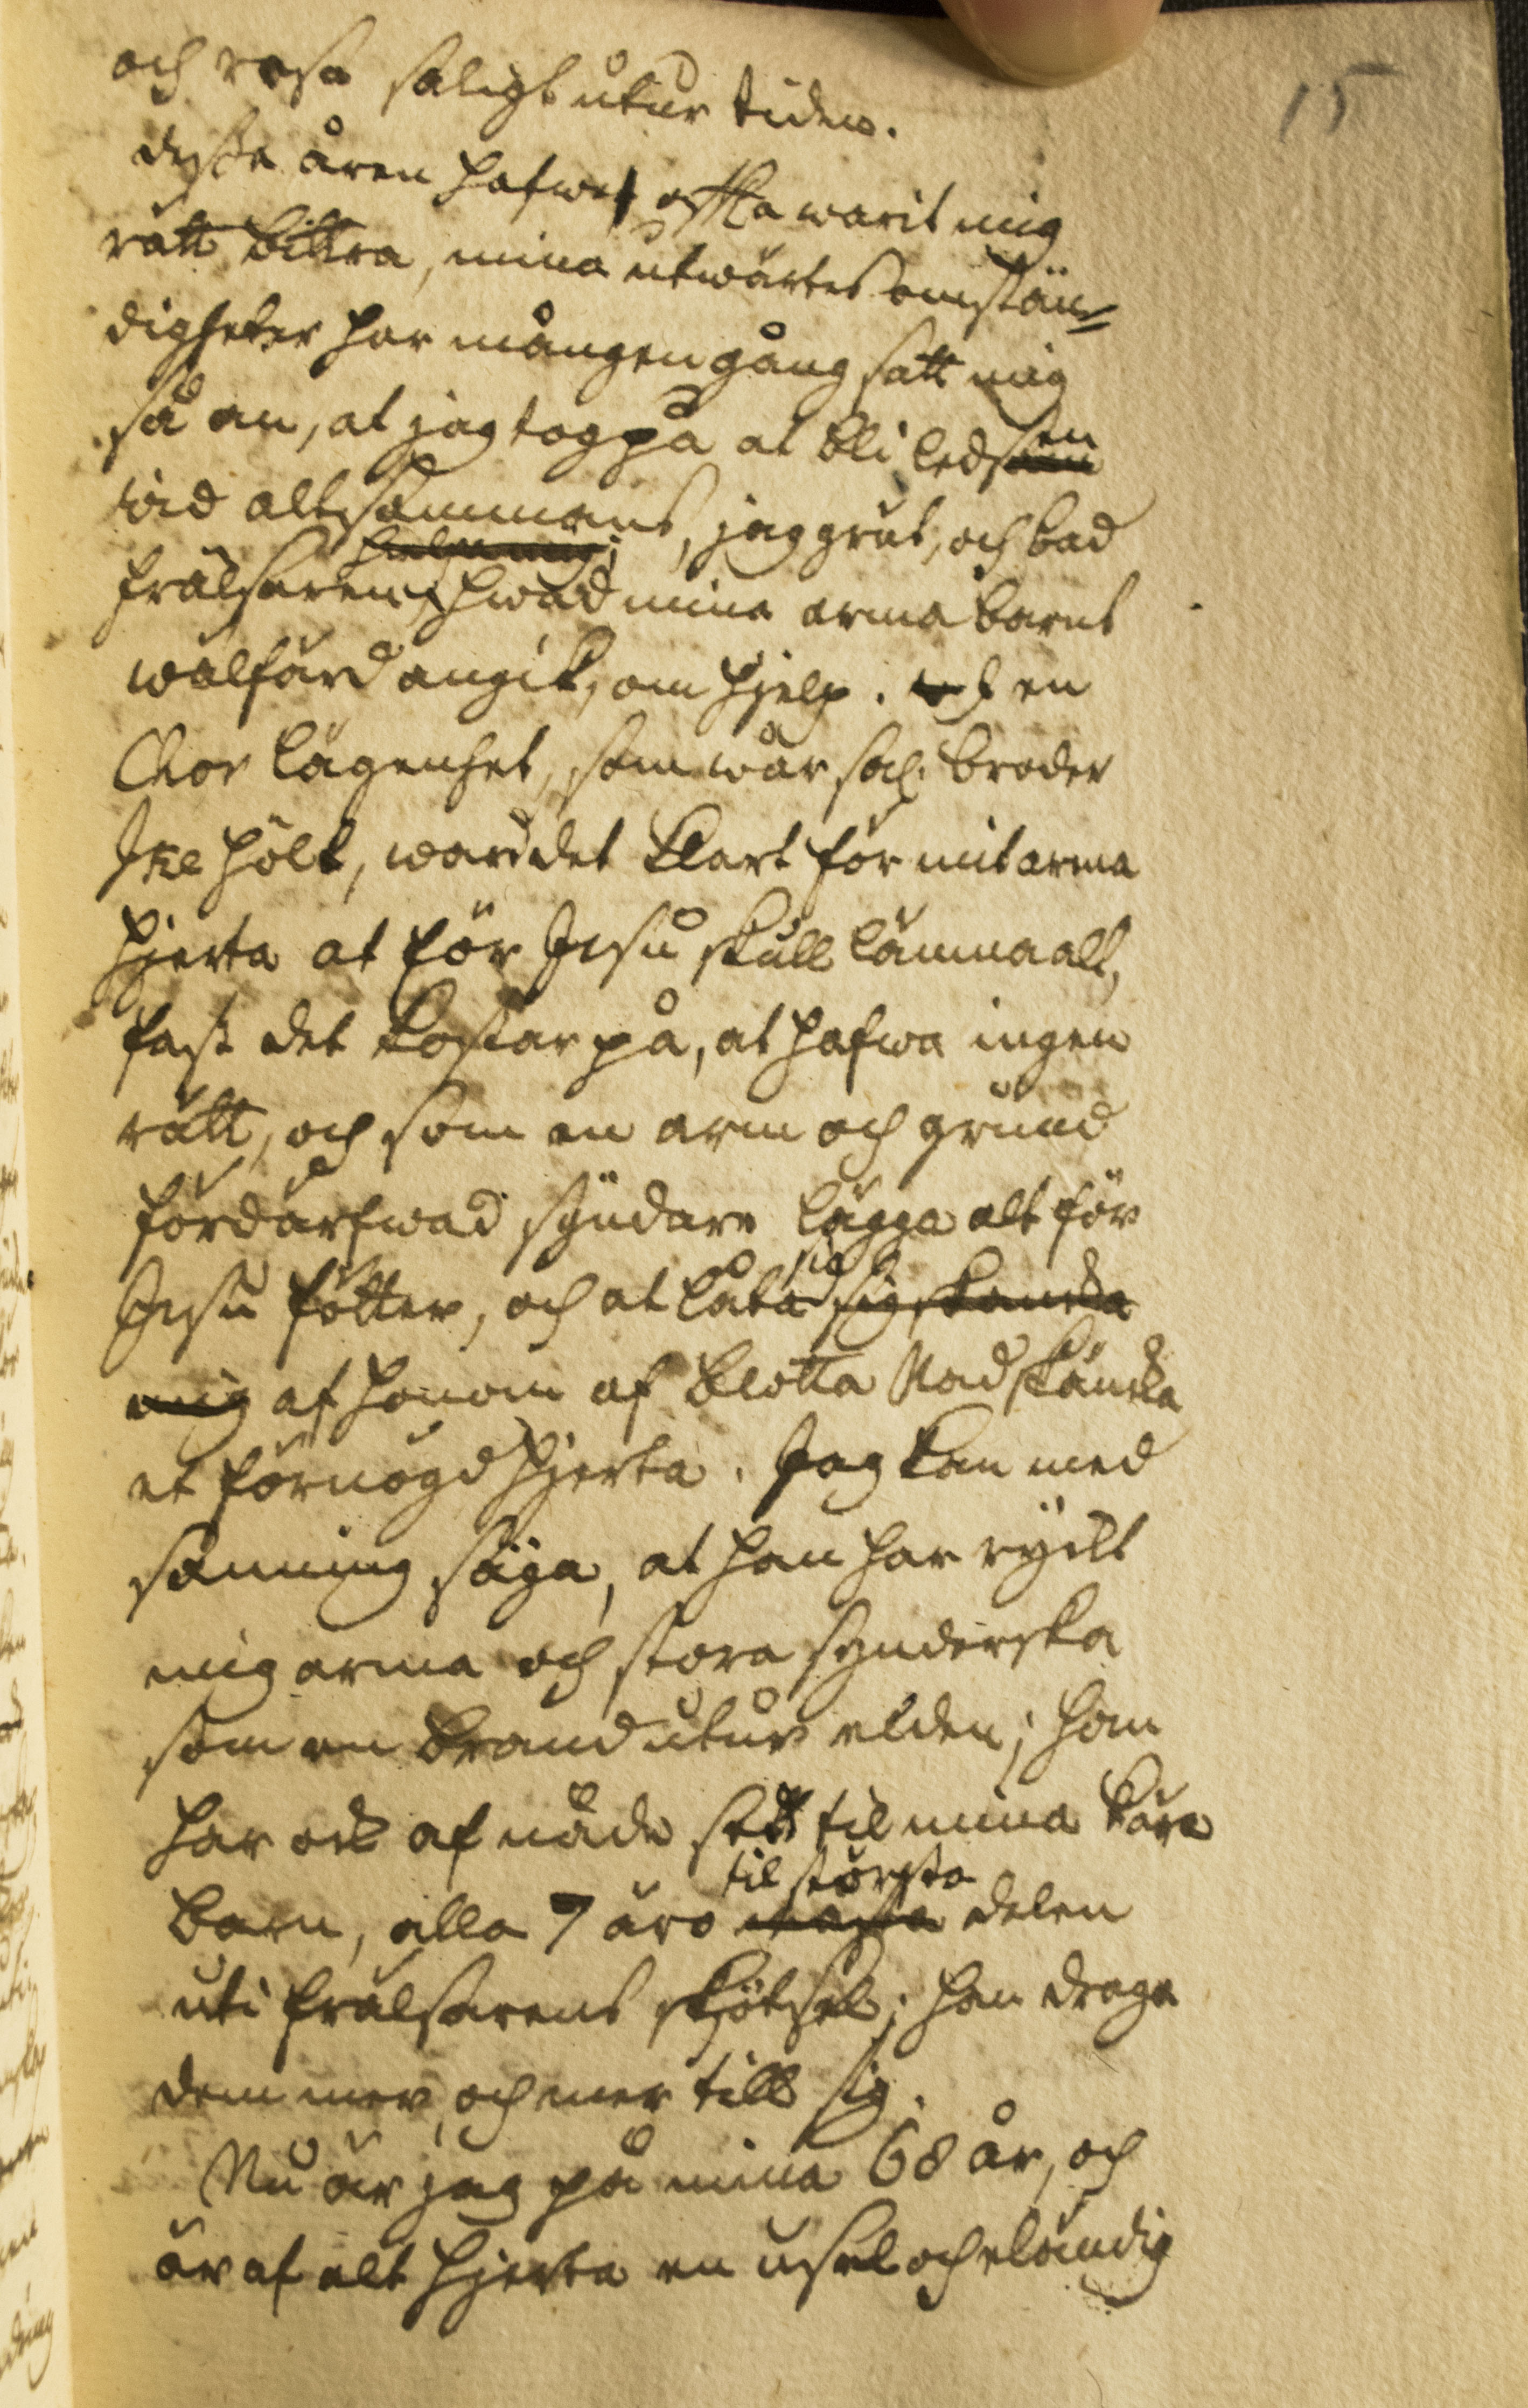 15
och resa saligt utur tiden.
Dessa åren hafwa offta warit mig
rätt bittra, mina utwärtes omstän=
digheter har mången gång satt mig
så an, at jag tog på at bli ledsen
wid altsammans, jag grät, och bad
Frälsaren, hwad mina arma barns
wälfärd angik, om hjelp. en
Chor lägenhet, som wår sal. broder
Ike hölt, ward det klart för mit arma
hjerta at för Jesu skull lämna alt,
fast det kostar på, at hafwa ingen
rätt, och som en arm och grund
fördärfwad syndare lägga alt för
Jesu fötter, och at låta sig
af honom af blotta Nåd skänka
et förnögd hjerta. Jag kan med
sanning säga, at han har ryckt
mig arma och stora synderska
som en brand utur elden; han
har ock af nåde sedt til mina kära
barn, alla 7 äro til största delen
uti Frälsarens skjötsel; han drage
dem mer och mer till sig.
Nu är jag på mina 68 år, och
är af alt hjerta en usel och eländig